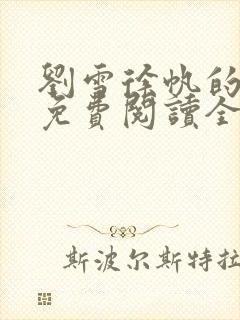 劉雪徐帆的
免費閱讀全
斯波尔斯特拉